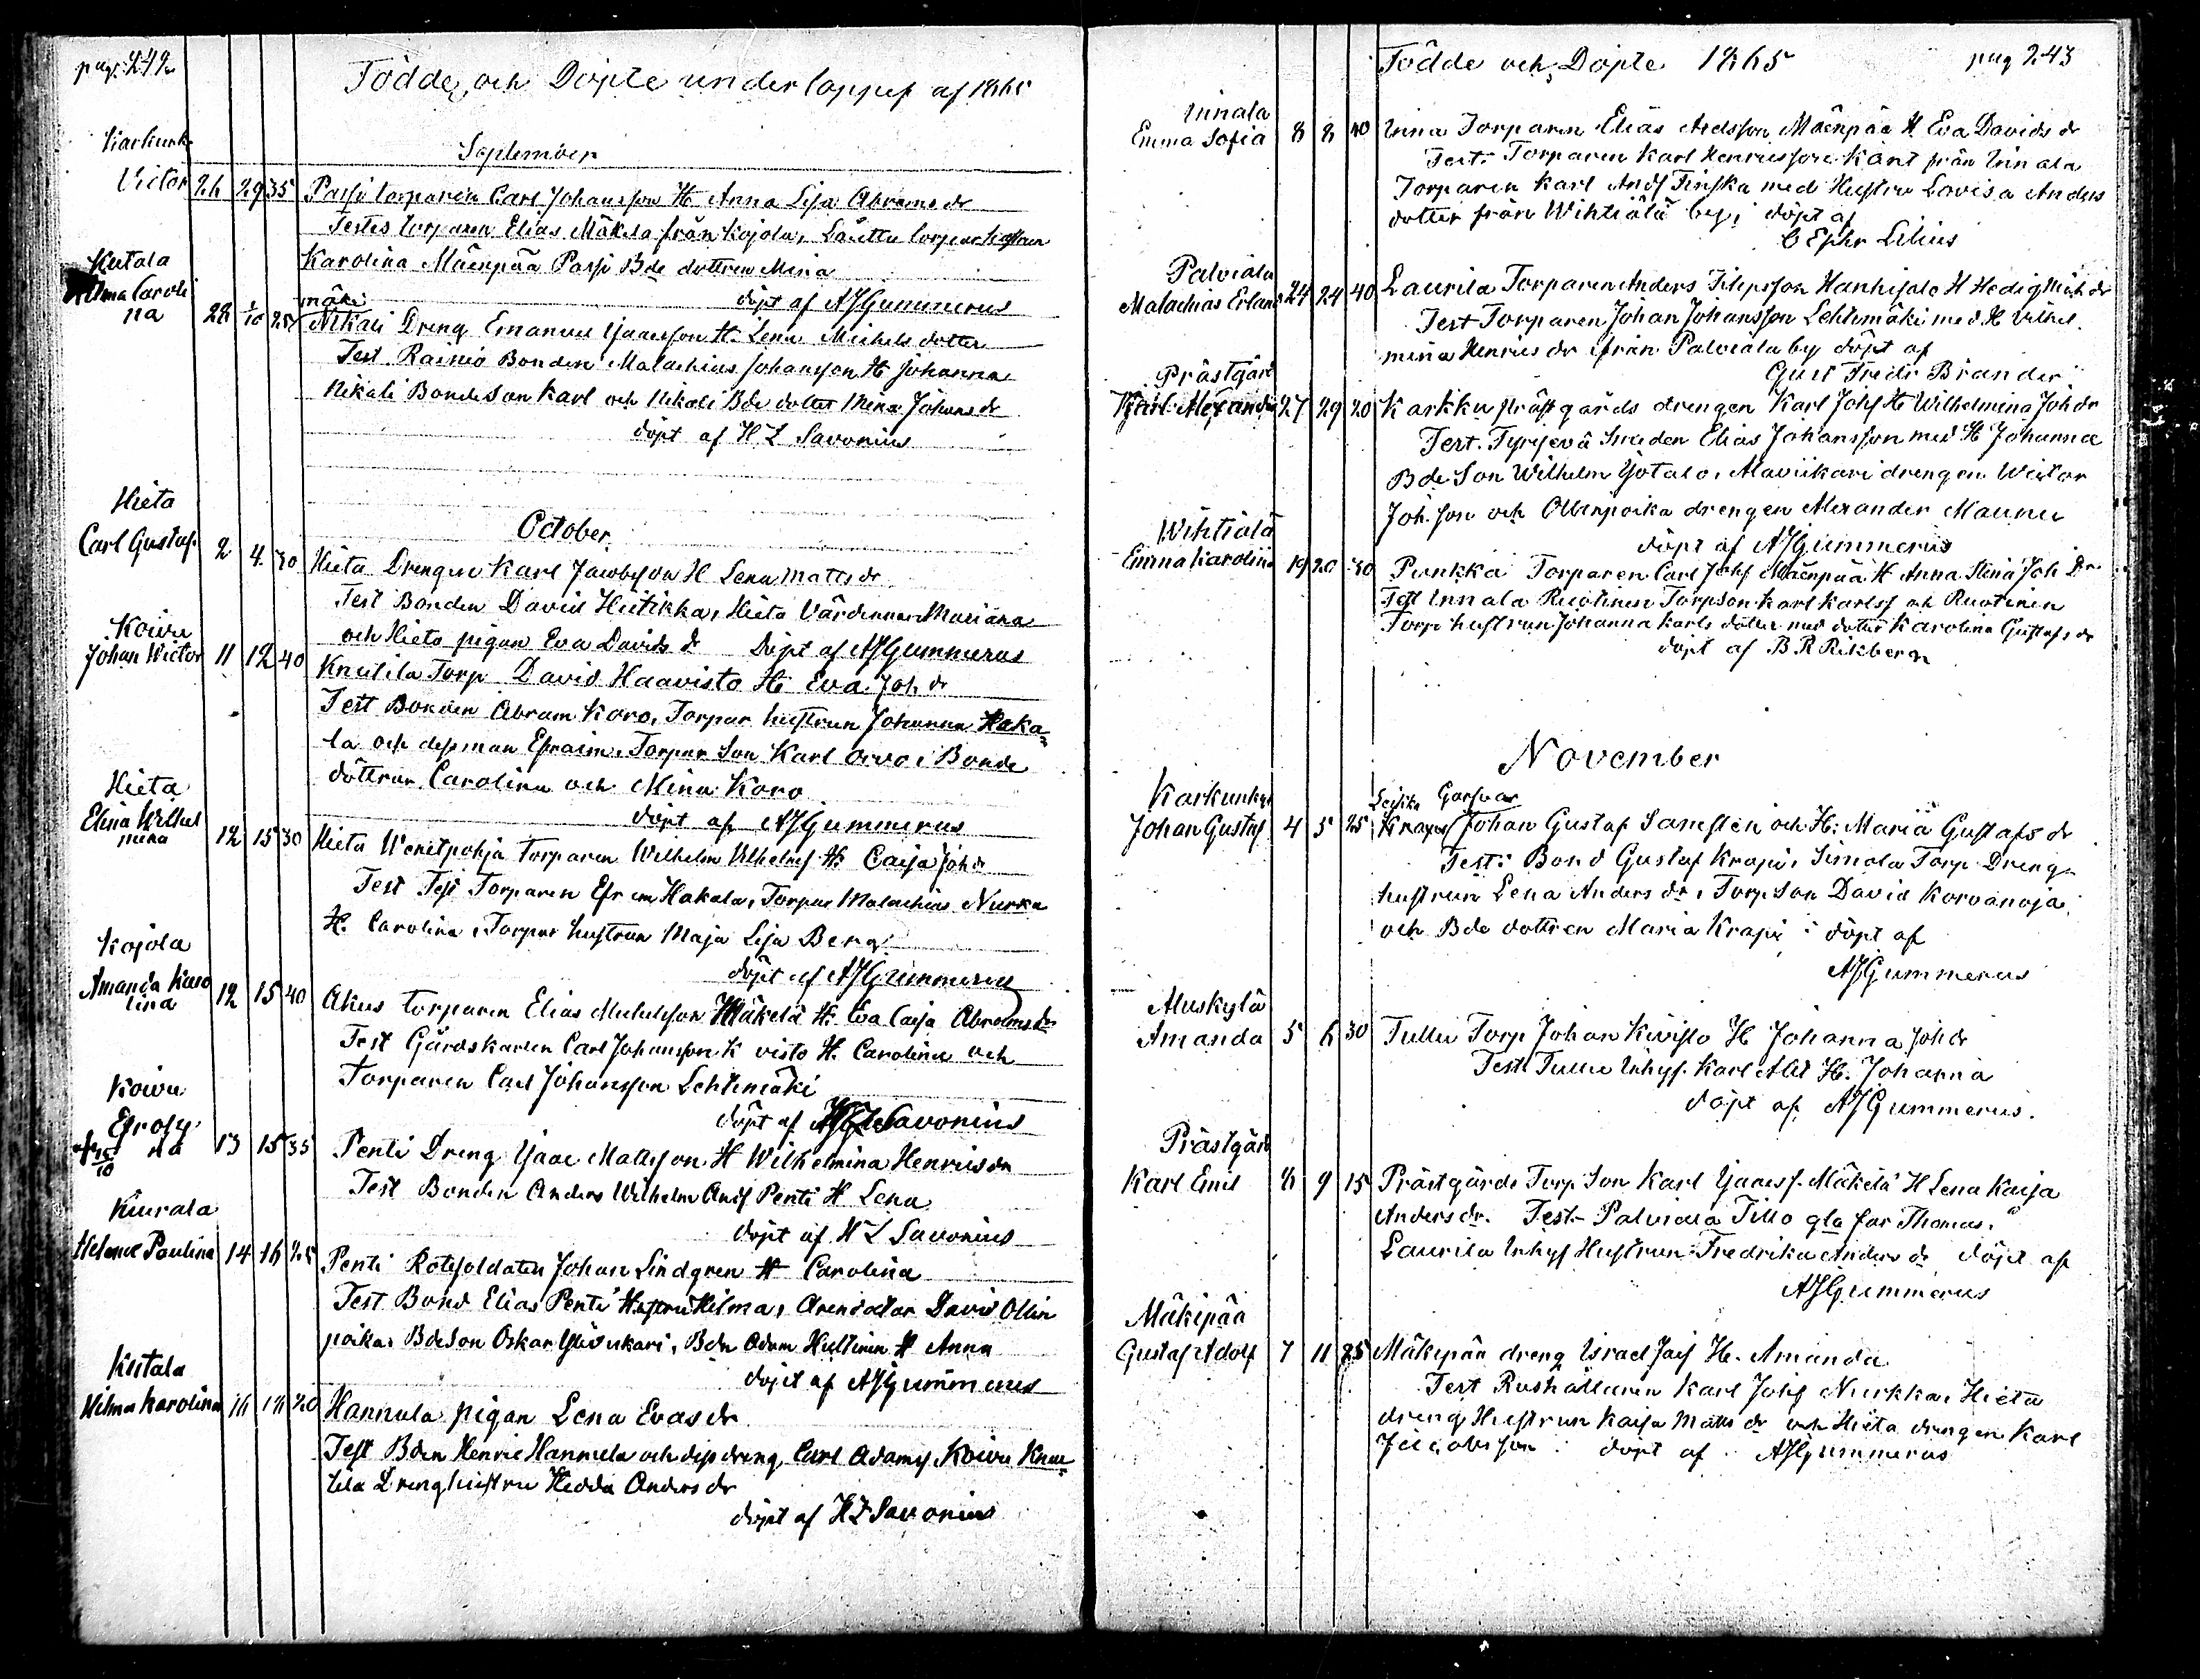 pag. 242
Födde och Döpte under loppet af 1865
September
Karkunk
Victor 26 29 35 Passi torparen Carl Johansson H Anna Lisa Abrams dr
Testes torparen Elias Mäkela från Kojola, torpare hustrun
Karolina Mäenpää Passi Bde dottren Mina
döpt af AJGummerus
Kutala
Carolina 28 1/10 25 Nikali mäki Dreng Emanuel Isaacsson H. Lena Michels dotter
Test. Rainio Bonden Malachias Johansson H Johanna
Nikali Bondeson Karl och Nikali Bde dotter Mina Johans dr
döpt af H L Savonius
October
Hieta
Carl Gustaf 2 4 30 Hieta Drengen Karl Jacobsson H Lena Matts dr
Test Bonden David Huitikka, Hieta Värdinnan Mariana
och Hieta pigan Eva Davids d Döpt af AJGummerus
Koivu
Johan Wictor 11 12 40 Knutila Torp David Haavisto H. Eva Joh. dr
Test Bonden Abram Koro, Torpar hustrun Johanna Haka-
la och dess man Efraim, Torpar Son Karl Orvo, Bonde
döttrar Carolina och Mina Koro
döpt af AJGummerus
Hieta
Elina Wilhelmina 12 15 30 Hieta Wenetpohja torparen Wilhelm Wilhelmss H. Caisa Joh dr
Test Test Torparen Efraim Hakala, Torpar Malachias Nurka
H. Carolina, Torpar hustrun Maja Lisa Berg
döpt af AJGummerus
Kojola
Amanda Karolina 12 15 40 Akus torparen Elias Michelsson Mäkelä H. Eva Caisa Abrams dr
Test Gårdskarlen Carl Johansson K visto H. Carolina och
Torparen Carl Johansson Lehtimäki
döpt af Savonius
Koivu
Efrosyna 13 15 35 Penti Dreng Isaac Mattsson H Wilhelmina Henrics dr
15/10
Test Bonden Anders Wilhelm Ands Penti H Lena
döpt af H L Savonius
Kiurala
Helena Paulina 14 16 25 Penti Rotesoldaten Johan Lindgren H Carolina
Test Bond Elias Penti Hustru Hilma, Arendator David Ollin
poika, Bdeson Oskar, Bdn Adam Hultinen H Anna
döpt af AJGummerus
Kutala
Wilma Karolina 16 18 20 Hannula pigan Lena Evas dr
Test Bden Henric Hannula och dess dreng Carl Adams, Koivu Knu-
tila Drenghustru Hedda Anders dr
döpt af H L Savonius
Födde och Döpte 1865 pag 243
Innala
Emma Sofia 8 8 40 Inna Torparen Elias Andsson Mäenpää H Eva Davids dr
Test. Torparen Karl Henricsson Känt från Innala
Torparen Karl Ands Finska med Hustru Lovisa Anders
dotter från Wihtiälä by, döpt af
C Ephr Lilius
Palviala
Malachias Erland 24 24 40 Laurila Torparen Anders Filipsson Hanhisalo H Hedvig Mich dr
Test Torparen Johan Johansson Lehtimäki med H Vilhel
mina Henrics dr från Palviala by döpt af
Gust Fredr Brander
Prästgård
Karl Alexander 27 29 20 Karkku prästgårds drengen Karl Johs H Wilhelmina Joh dr
Test. Tyrjevä Smeden Elias Johansson med H Johanna
Bde Son Wilhelm Isotalo, Mavikari drengen Wictor
Joh. son och Ollinpoika drengen Alexander Maunu
döpt af AJGummerus
Wihtiälä
Emma Karolina 19 20 30 Punkka Torparen Carl Johs Mäenpää H Anna Stina Joh Dr
Test Innala Ruotinen Torpson Karl Karlss och Ruotinen
Torp hustrun Johanna Karls dotter med dotter Karolina Gustafs dr
döpt af B R Rikberg
November
Karkunkyl
Johan Gustaf 4 5 25 Krapi Johan Gustaf Samsten och H. Maria Gustafs dr
Test: Bond Gustaf Krapi, Simola Torp Dreng-
hustrun Lena Anders dr, Torp Son David Korvanoja
och Bde dottren Maria Krapi döpt af
AJGummerus
Aluskylä
Amanda 5 6 30 Tullu Torp Johan Kivisto H Johanna Joh dr
Test Tullu Inhys. Karl H. Johanna
döpt af AJGummerus.
Prästgård
Karl Emil 8 9 15 Prästgårds Torp Son Karl Isaacs. Mäkelä H Lena Kaisa
Anders dr. Test. Palviala Tillo gla far Thomas,
Laurila Inhys Hustrun Fredrika Anders dr döpt af
AJGummerus
Mäkipää
Gustaf Adolf 7 11 25 Mäkipää dreng Israel H. Amanda
Test Rushållaren Karl Johs Nurkka, Hieta
dreng Hustrun Kaisa Matts dr och Hieta drengen Karl
Jacobsson döpt af AJGummerus